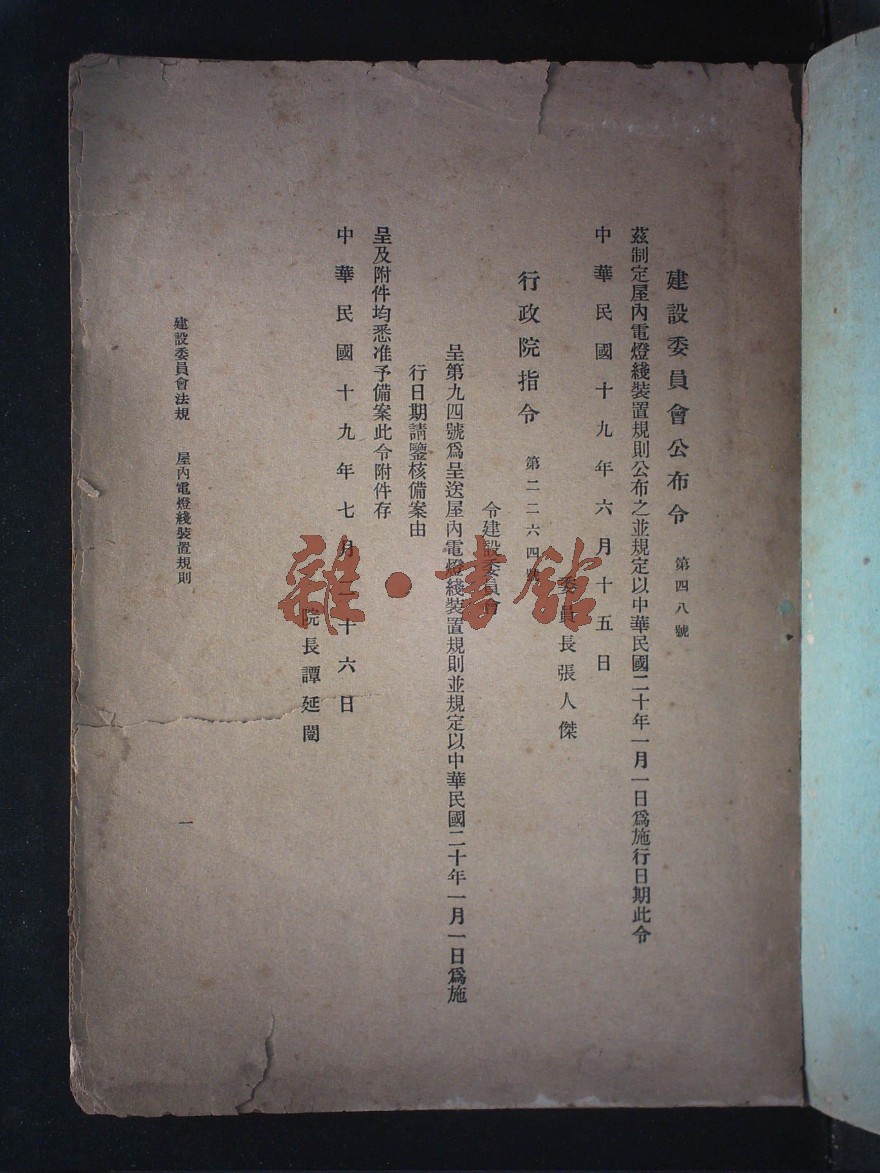 建設委員會公布令 第四八號
茲制定屋內電燈綫裝置規則公布之並規定以中華民國二十年一月一日爲施行日期此令
中華民國十九年六月十五日
委員長張人傑
行政院指令 第二二六四號
令建設委員會
呈第九四號爲呈送屋內電燈綫裝置規則並規定以中華民國二十年一月一日爲施
行日期請鑒核備案由
呈及附件均悉准予備案此令附件存
中華民國十九年七月二十六日
院長譚延闓
建設委員會法規 屋內電燈綫裝置規則
一
雜·書館